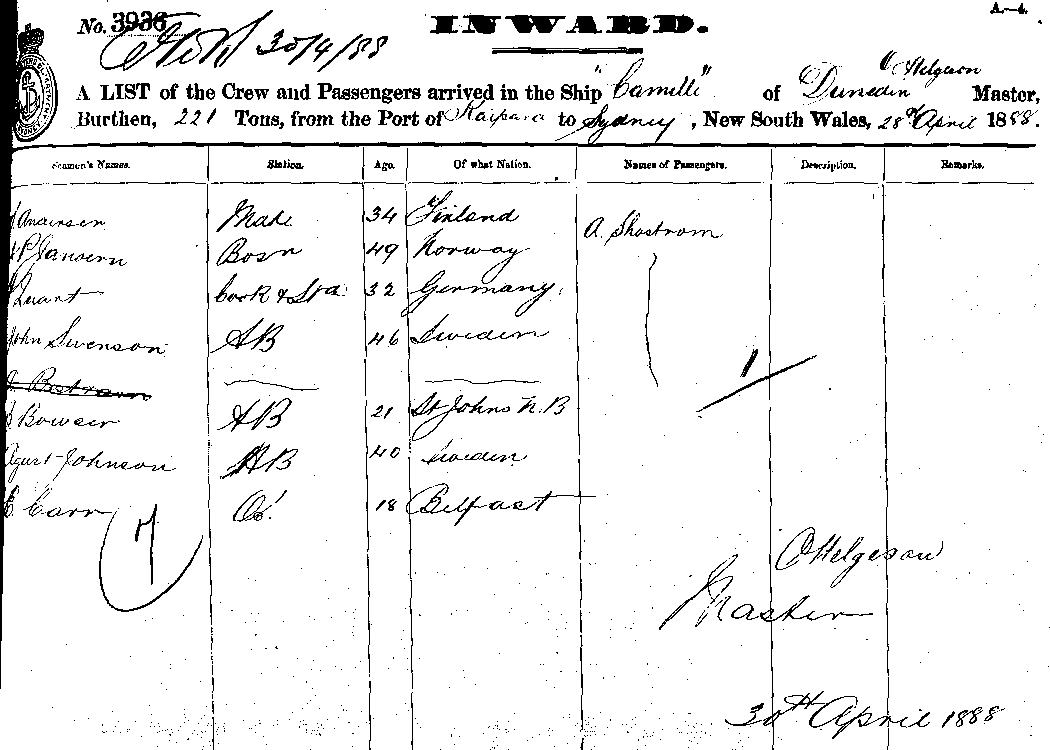 A.—4.
No. 3936 INWARD.
30/4/88
O Helgeson
A LIST of the Crew and Passengers arrived in the Ship "Camille" of Dunedin Master,
Burthen, 221 Tons, from the Port of Kaipara to Sydney, New South Wales, 28th April 1888.
Seamen's Names. Station. Age. Of what Nation. Names of Passengers. Description. Remarks.
Andersen Mate 34 Finland A. Shostrom
Bosn 49 Norway
Quant Cook & Std 32 Germany
John Swenson AB 46 Sweden
Bowser AB 21 St Johns N.B
Johnson AB 40 Sweden
Carr 18 Belfast
7
1
O Helgeson
Master
30th April 1888